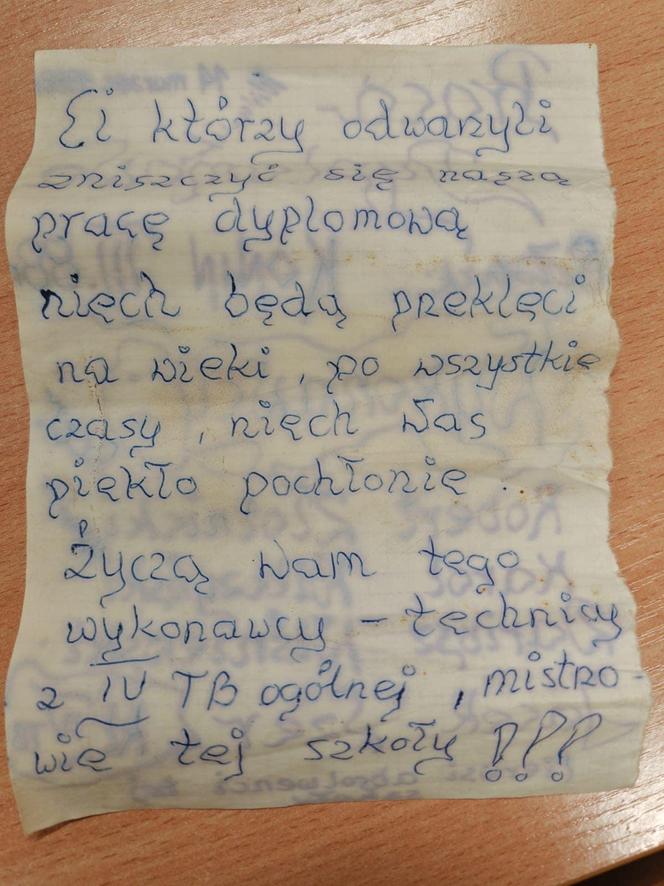 Ci którzy odwarzyli
zniszczyć się naszą
pracę dyplomową
niech będą preklęci
na wieki, po wszystkie
czasy, niech Was
piekło pochłonie.
Życzą Wam tego
wykonawcy – technicy
z IV TB ogólnej, mistrzo-
wie tej szkoły !!!